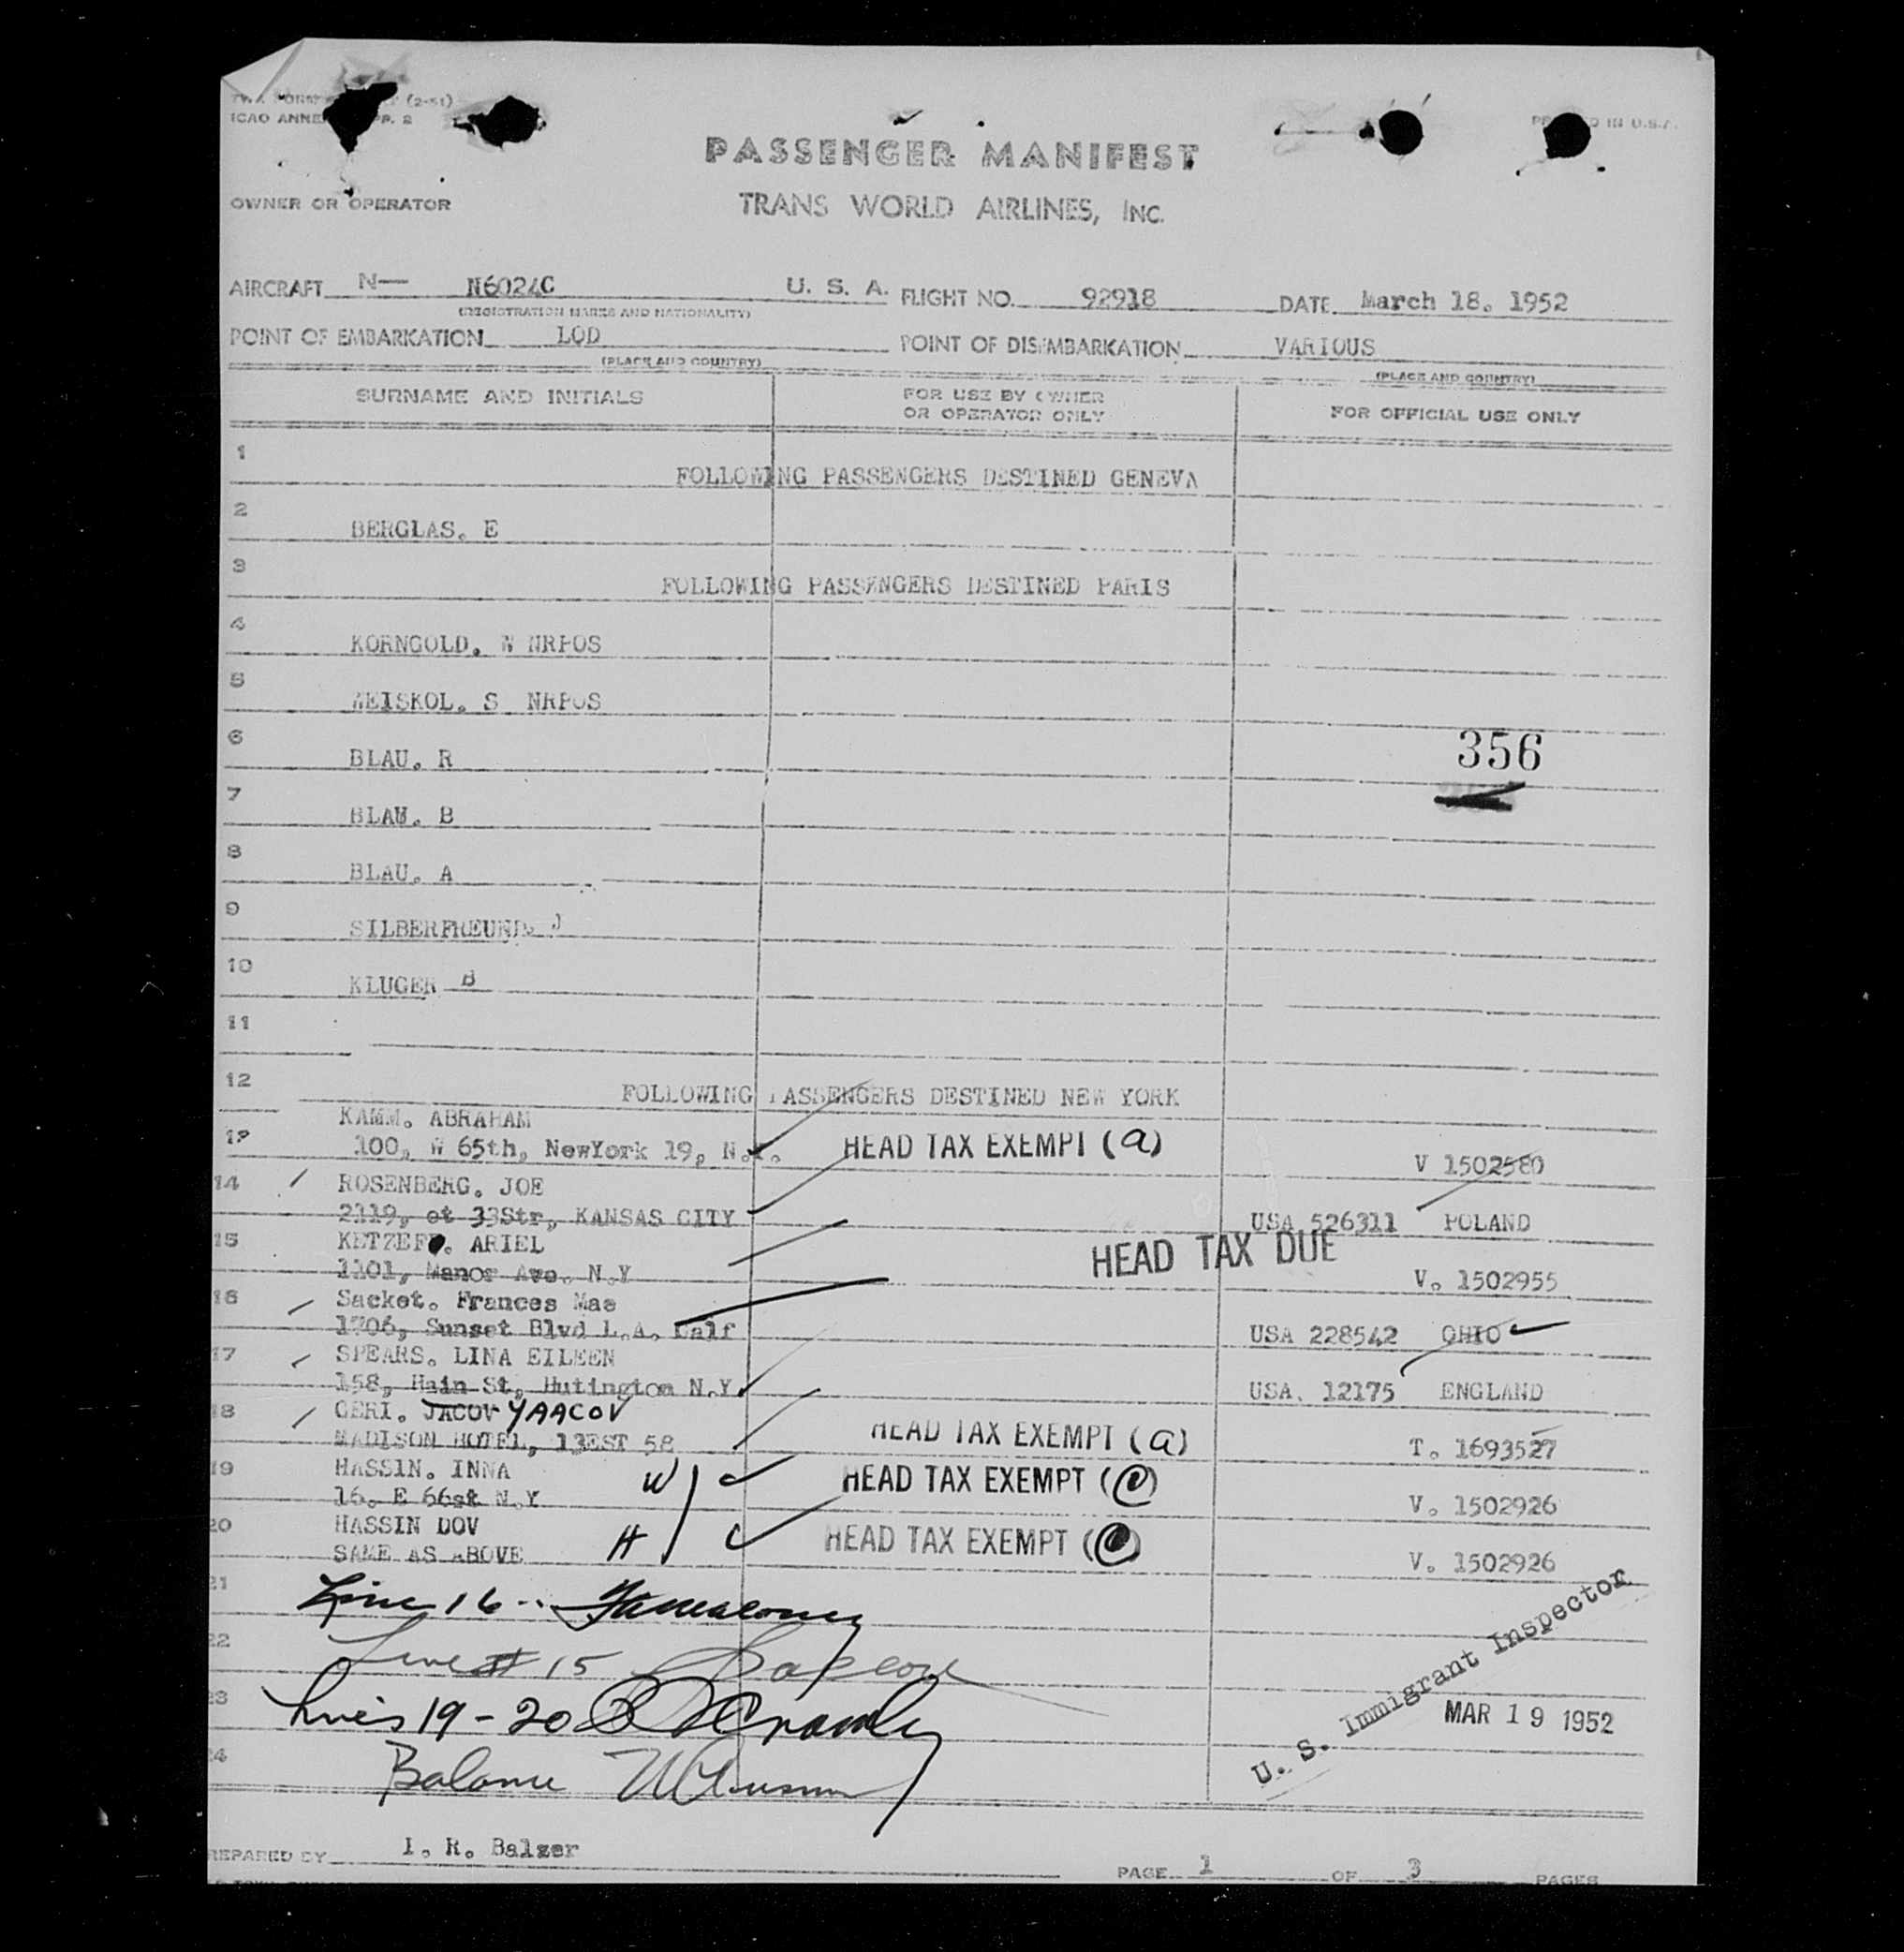 TWA FORM (2-51)
ICAO ANNE P. 2
IN U.S.A.
PASSENGER MANIFEST
OWNER OR OPERATOR
TRANS WORLD AIRLINES, INC.
AIRCRAFT N— N6024C U. S. A. FLIGHT NO. 92918 DATE March 18. 1952
(REGISTRATION MARKS AND NATIONALITY)
POINT OF EMBARKATION LOD POINT OF DISEMBARKATION VARIOUS
(PLACE AND COUNTRY) (PLACE AND COUNTRY)
SURNAME AND INITIALS FOR USE BY OWNER OR OPERATOR ONLY FOR OFFICIAL USE ONLY
1 FOLLOWING PASSENGERS DESTINED GENEVA
2 BERGLAS. E
3 FOLLOWING PASSENGERS DESTINED PARIS
4 KORNGOLD. W NRPOS
5 WEISKOL. S NRPOS
6 BLAU. R 356
7 BLAU. B
8 BLAU. A
9 SILBERFREUND. J
10 KLUGER B
11
12 FOLLOWING PASSENGERS DESTINED NEW YORK
KAMM. ABRAHAM
13 100, W 65th, NewYork 19, N.Y. HEAD TAX EXEMPT (a) V 1502580
14 ROSENBERG. JOE
2119, et 33Str, KANSAS CITY USA 526311 POLAND
15 KETZEF. ARIEL HEAD TAX DUE
1101, Manor Ave. N.Y V. 1502955
16 Sacket. Frances Mae
1706, Sunset Blvd L.A. Calf USA 228542 OHIO
17 SPEARS. LINA EILEEN
158, Hain St, Hutington N.Y. USA. 12175 ENGLAND
18 GERI. JACOV YAACOV
MADISON HOTEL, 13EST 58 HEAD TAX EXEMPT (a) T. 1693527
19 HASSIN. INNA W HEAD TAX EXEMPT (e)
16. E 66st N.Y V. 1502926
20 HASSIN DOV
SAME AS ABOVE H HEAD TAX EXEMPT V. 1502926
21 Line 16
22 Line # 15
23 Lines 19 - 20
24 Balance
U. S. Immigrant Inspector
MAR 19 1952
PREPARED BY I. R. Balzer PAGE 1 OF 3 PAGES